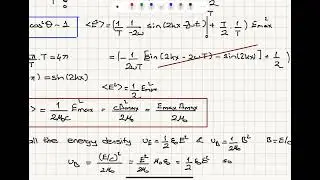 cos²θ - 1
<E²> = (1/T 1/-2ω sin(2kx - 2ωt)|₀ᵀ + T/2 1/T) E²max
T = 4π
= (- 1/2ωT [sin(2kx - 2ωT) - sin(2kx)] + 1/2)
) = sin(2kx)
<E²> = 1/2 E²max
> = 1/2μ₀c E²max = cB²max/2μ₀ = Emax Bmax/2μ₀
all the energy density u_E = 1/2 ε₀E² & u_B = 1/2μ₀ B² B = E/c
u_B = (E/c)²/2μ₀ = E²/2μ₀ μ₀ε₀ = 1/2 ε₀E² so